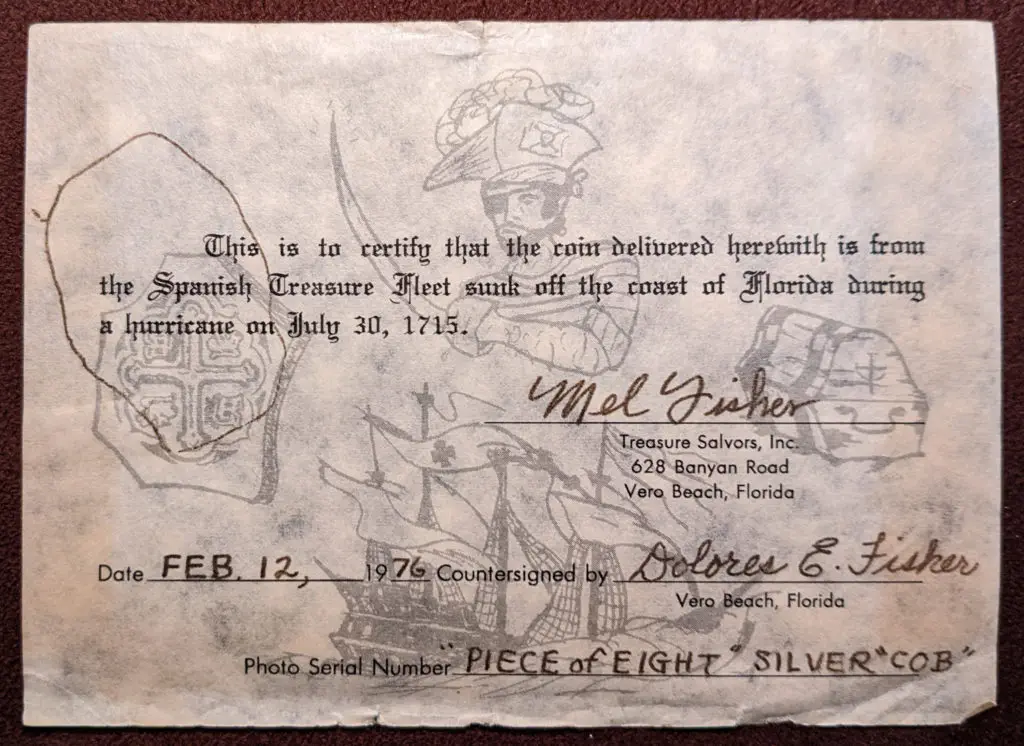 This is to certify that the coin delivered herewith is from
the Spanish Treasure Fleet sunk off the coast of Florida during
a hurricane on July 30, 1715.
Mel Fisher
Treasure Salvors, Inc.
628 Banyan Road
Vero Beach, Florida
Date FEB. 12, 1976 Countersigned by Dolores E. Fisher
Vero Beach, Florida
Photo Serial Number "PIECE of EIGHT" SILVER "COB"